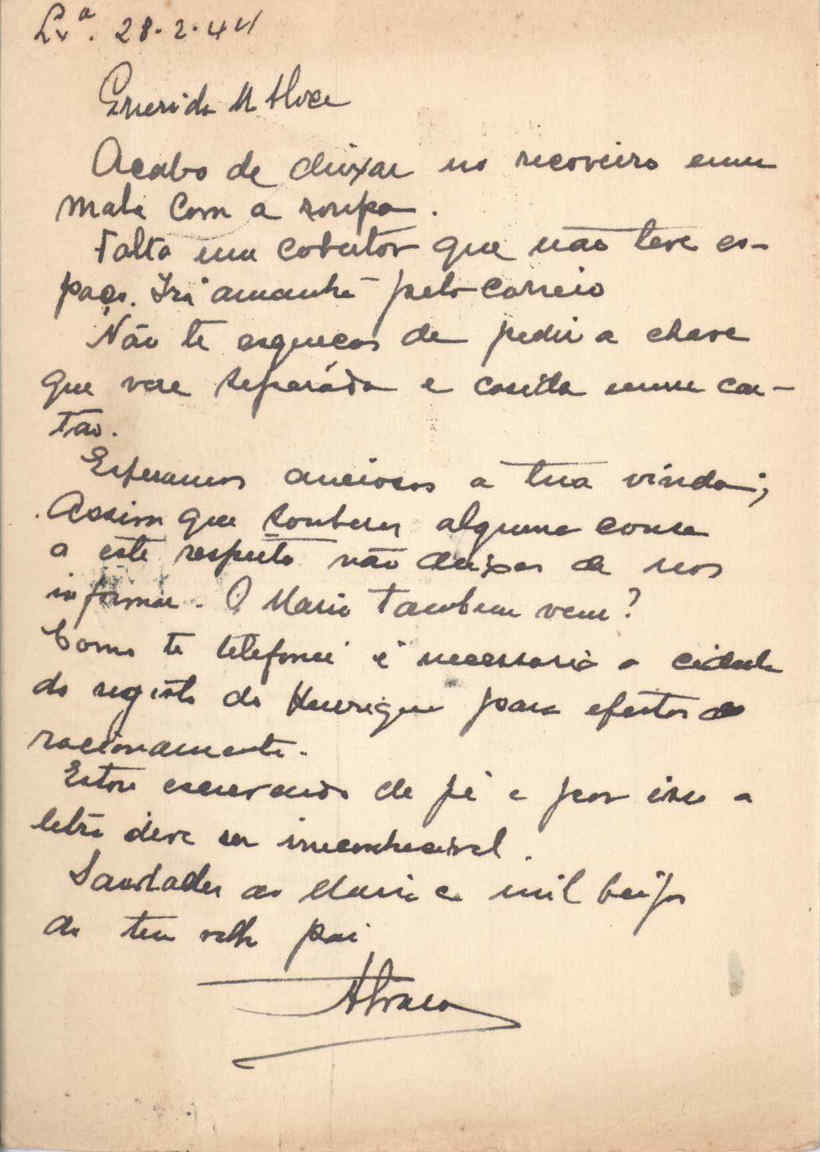 Lxª. 28-2-44
Querida M Alice
Acabo de deixar no recoveiro uma
mala com a roupa.
Falta um cobertor que não teve es-
paço. Irá amanhã pelo correio
Não te esqueças de pedir a chave
que vae separada e cosida num car-
tão.
Esperamos anciosos a tua vinda;
Assim que souberes alguma cousa
a este respeito não deixes de nos
informar. O Mario tambem vem?
Como te telefonei é necessario a
do registo do Henrique para efeitos de
racionamento.
Estou escrevendo de pé e por isso a
letra deve ser inconhecivel.
Saudades ao Mario e mil beijos
do teu velho pai